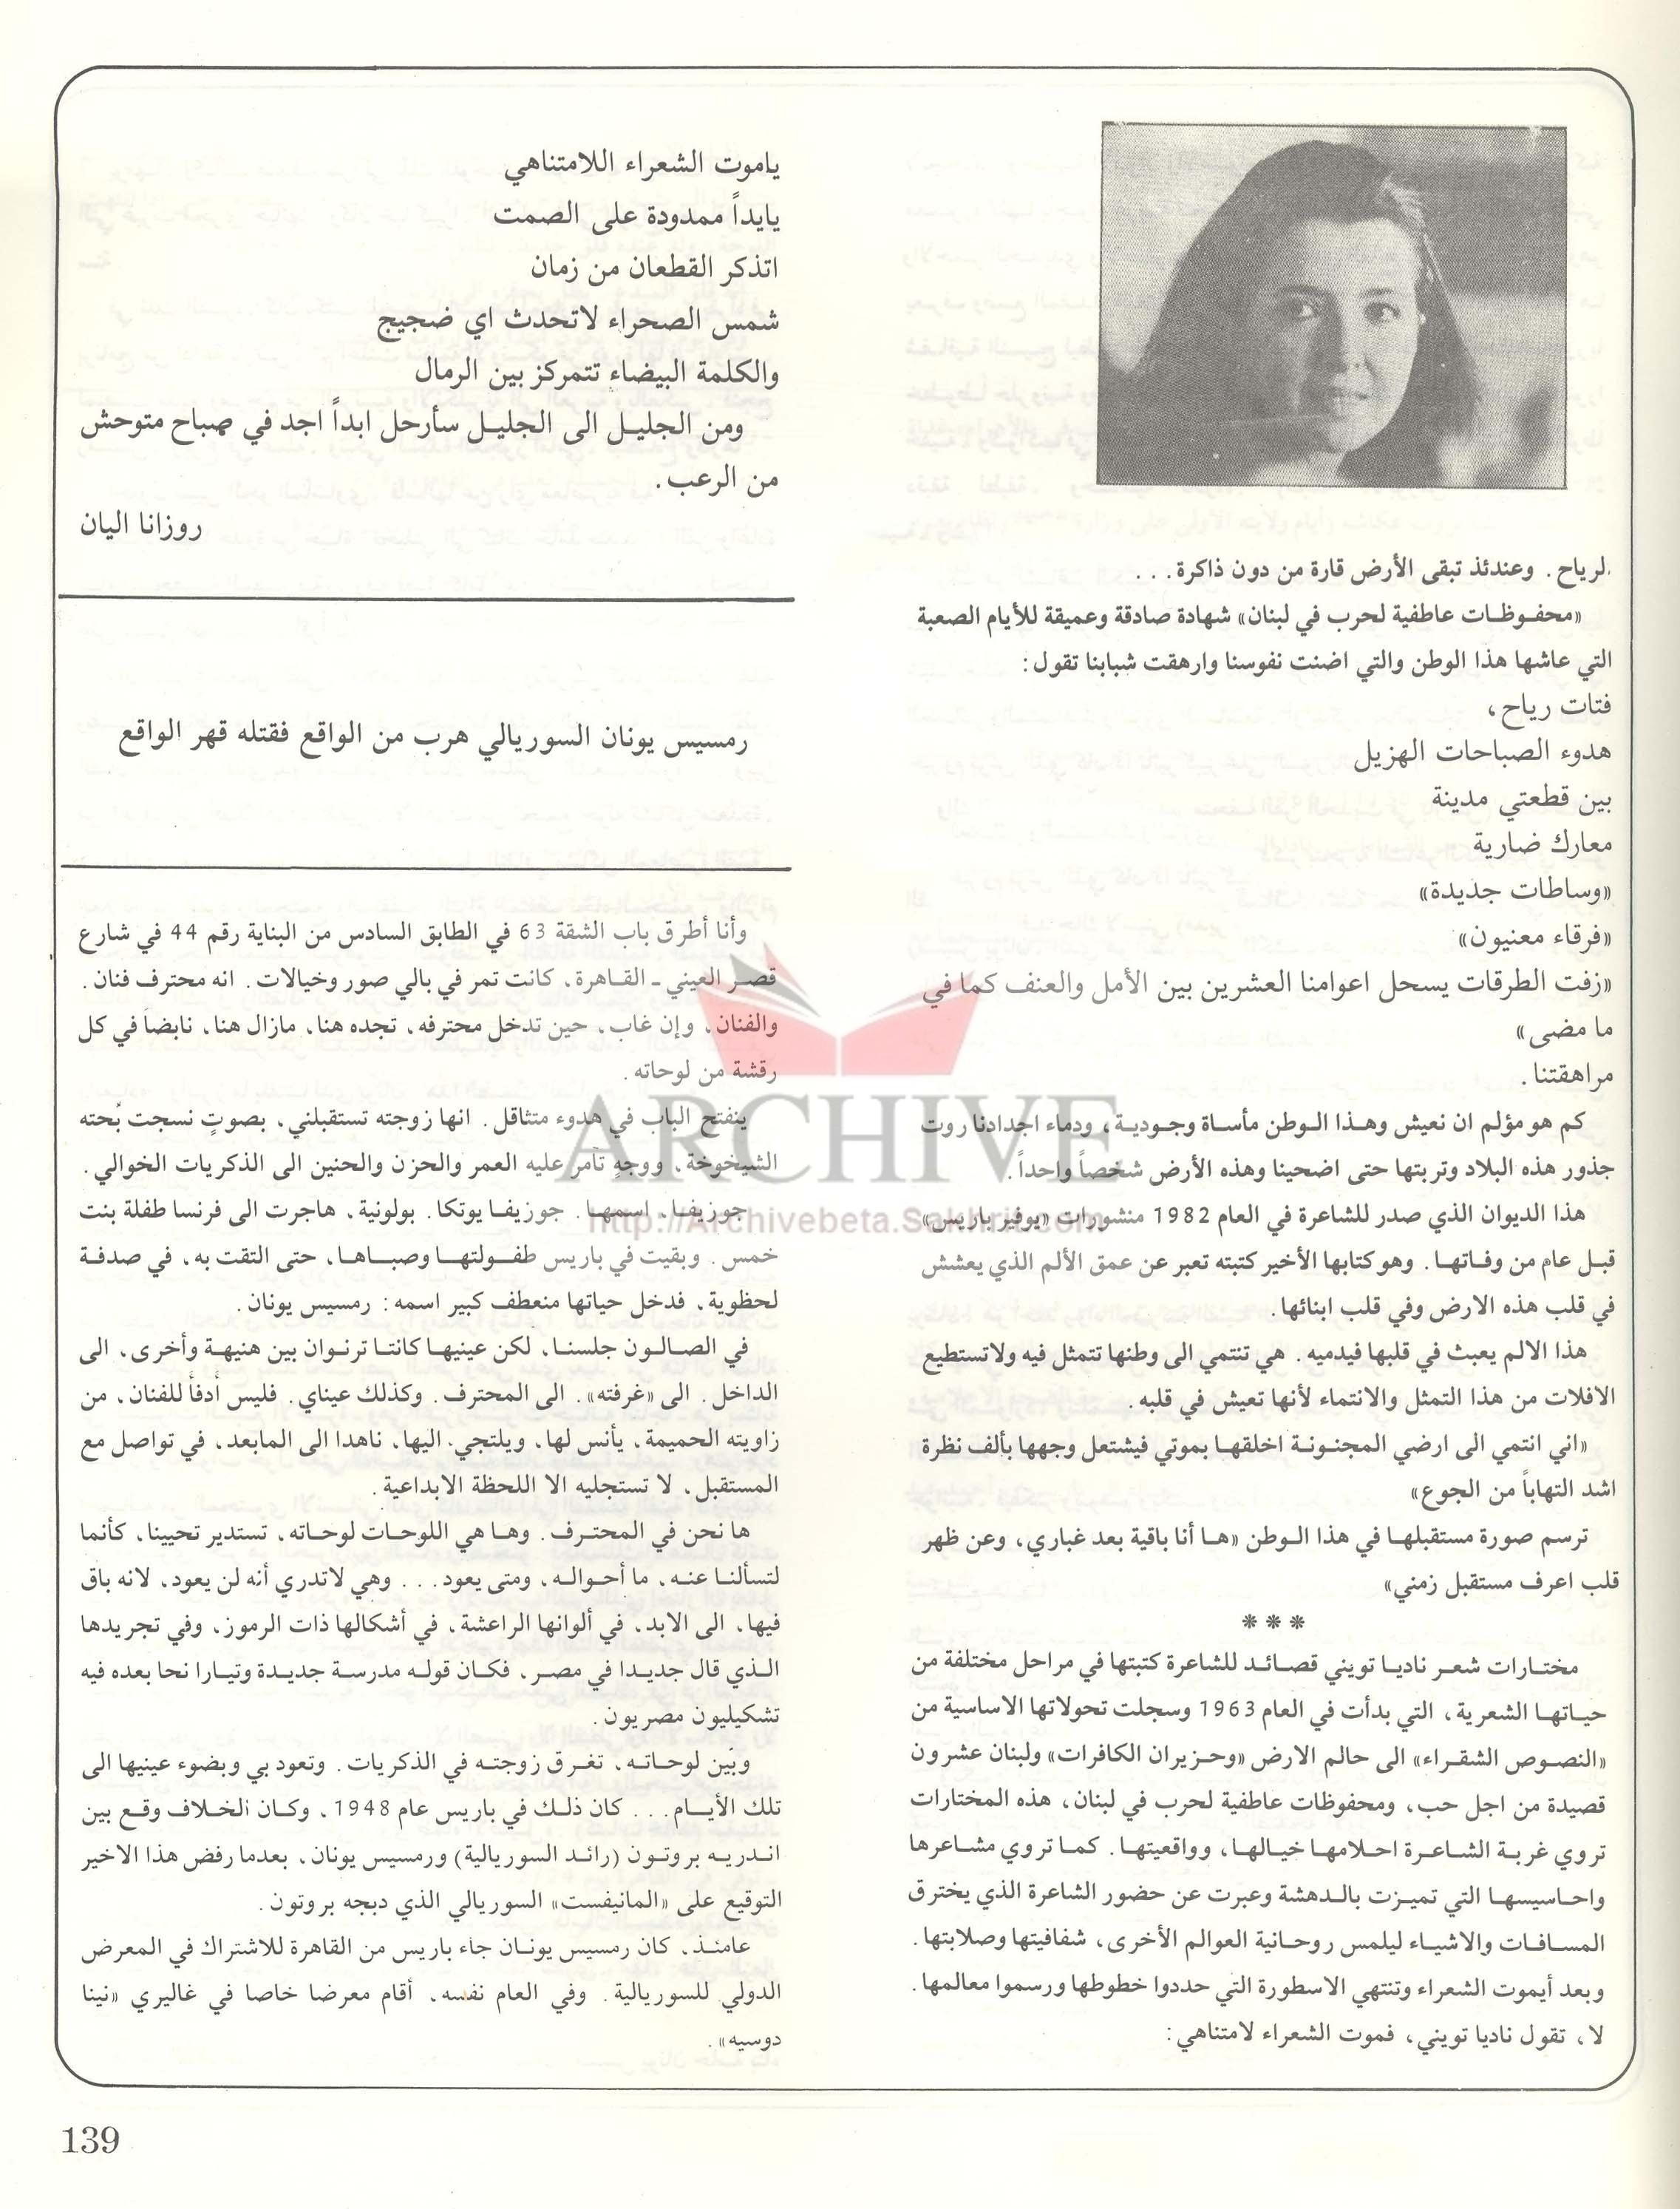 لرياح. وعندئذ تبقى الأرض قارة من دون ذاكرة...
«محفوظات عاطفية لحرب في لبنان» شهادة صادقة وعميقة للأيام الصعبة
التي عاشها هذا الوطن والتي اضنت نفوسنا وارهقت شبابنا تقول:
فتات رياح،
هدوء الصباحات الهزيل
بين قطعتي مدينة
معارك ضارية
«وساطات جديدة»
«فرقاء معنيون»
«زفت الطرقات يسحل اعوامنا العشرين بين الأمل والعنف كما في
ما مضى»
مراهقتنا.
كم هو مؤلم ان نعيش وهذا الوطن مأساة وجودية، ودماء اجدادنا روت
جذور هذه البلاد وتربتها حتى اضحينا وهذه الأرض شخصاً واحداً.
هذا الديوان الذي صدر للشاعرة في العام 1982 منشورات «يوفير باريس»
قبل عام من وفاتها. وهو كتابها الأخير كتبته تعبر عن عمق الألم الذي يعشش
في قلب هذه الارض وفي قلب ابنائها.
هذا الالم يعبث في قلبها فيدميه. هي تنتمي الى وطنها تتمثل فيه ولاتستطيع
الافلات من هذا التمثل والانتماء لأنها تعيش في قلبه.
«اني انتمي الى ارضي المجنونة اخلقها بموتي فيشتعل وجهها بألف نظرة
اشد التهاباً من الجوع»
ترسم صورة مستقبلها في هذا الوطن «ها أنا باقية بعد غباري، وعن ظهر
قلب اعرف مستقبل زمني»
***
مختارات شعر ناديا تويني قصائد للشاعرة كتبتها في مراحل مختلفة من
حياتها الشعرية، التي بدأت في العام 1963 وسجلت تحولاتها الاساسية من
«النصوص الشقراء» الى حالم الارض «وحزيران الكافرات» ولبنان عشرون
قصيدة من اجل حب، ومحفوظات عاطفية لحرب في لبنان، هذه المختارات
تروي غربة الشاعرة احلامها خيالها، وواقعيتها. كما تروي مشاعرها
واحاسيسها التي تميزت بالدهشة وعبرت عن حضور الشاعرة الذي يخترق
المسافات والاشياء ليلمس روحانية العوالم الأخرى، شفافيتها وصلابتها.
وبعد أيموت الشعراء وتنتهي الاسطورة التي حددوا خطوطها ورسموا معالمها.
لا، تقول ناديا تويني، فموت الشعراء لامتناهي:
ياموت الشعراء اللامتناهي
يايداً ممدودة على الصمت
اتذكر القطعان من زمان
شمس الصحراء لاتحدث اي ضجيج
والكلمة البيضاء تتمركز بين الرمال
ومن الجليل الى الجليل سأرحل ابداً اجد في صباح متوحش
من الرعب.
روزانا اليان
رمسيس يونان السوريالي هرب من الواقع فقتله قهر الواقع
وأنا أطرق باب الشقة 63 في الطابق السادس من البناية رقم 44 في شارع
قصر العيني ـ القاهرة، كانت تمر في بالي صور وخيالات. انه محترف فنان.
والفنان، وإن غاب، حين تدخل محترفه، تجده هنا، مازال هنا، نابضاً في كل
رقشة من لوحاته.
ينفتح الباب في هدوء متثاقل. انها زوجته تستقبلني، بصوتٍ نسجت بُحته
الشيخوخة، ووجهٍ تآمر عليه العمر والحزن والحنين الى الذكريات الخوالي.
جوزيفا، اسمها. جوزيفا يوتكا. بولونية، هاجرت الى فرنسا طفلة بنت
خمس. وبقيت في باريس طفولتها وصباها، حتى التقت به، في صدفة
لحظوية، فدخل حياتها منعطف كبير اسمه: رمسيس يونان.
في الصالون جلسنا، لكن عينيها كانتا ترنوان بين هنيهة وأخرى، الى
الداخل. الى «غرفته». الى المحترف. وكذلك عيناي. فليس أدفأ للفنان، من
زاويته الحميمة، يأنس لها، ويلتجي اليها، ناهدا الى المابعد، في تواصل مع
المستقبل، لا تستجليه الا اللحظة الابداعية.
ها نحن في المحترف. وها هي اللوحات لوحاته، تستدير تحيينا، كأنما
لتسألنا عنه، ما أحواله، ومتى يعود... وهي لاتدري أنه لن يعود، لانه باق
فيها، الى الابد، في ألوانها الراعشة، في أشكالها ذات الرموز، وفي تجريدها
الذي قال جديدا في مصر، فكان قوله مدرسة جديدة وتيارا نحا بعده فيه
تشكيليون مصريون.
وبين لوحاته، تغرق زوجته في الذكريات. وتعود بي وبضوء عينيها الى
تلك الأيام... كان ذلك في باريس عام 1948، وكان الخلاف وقع بين
اندريه بروتون (رائد السوريالية) ورمسيس يونان، بعدما رفض هذا الاخير
التوقيع على «المانيفست» السوريالي الذي دبجه بروتون.
عامئذ، كان رمسيس يونان جاء باريس من القاهرة للاشتراك في المعرض
الدولي للسوريالية. وفي العام نفسه، أقام معرضا خاصا في غاليري «نينا
دوسيه».
ARCHIVE
http://Archivebeta.Sakhrit.com
139